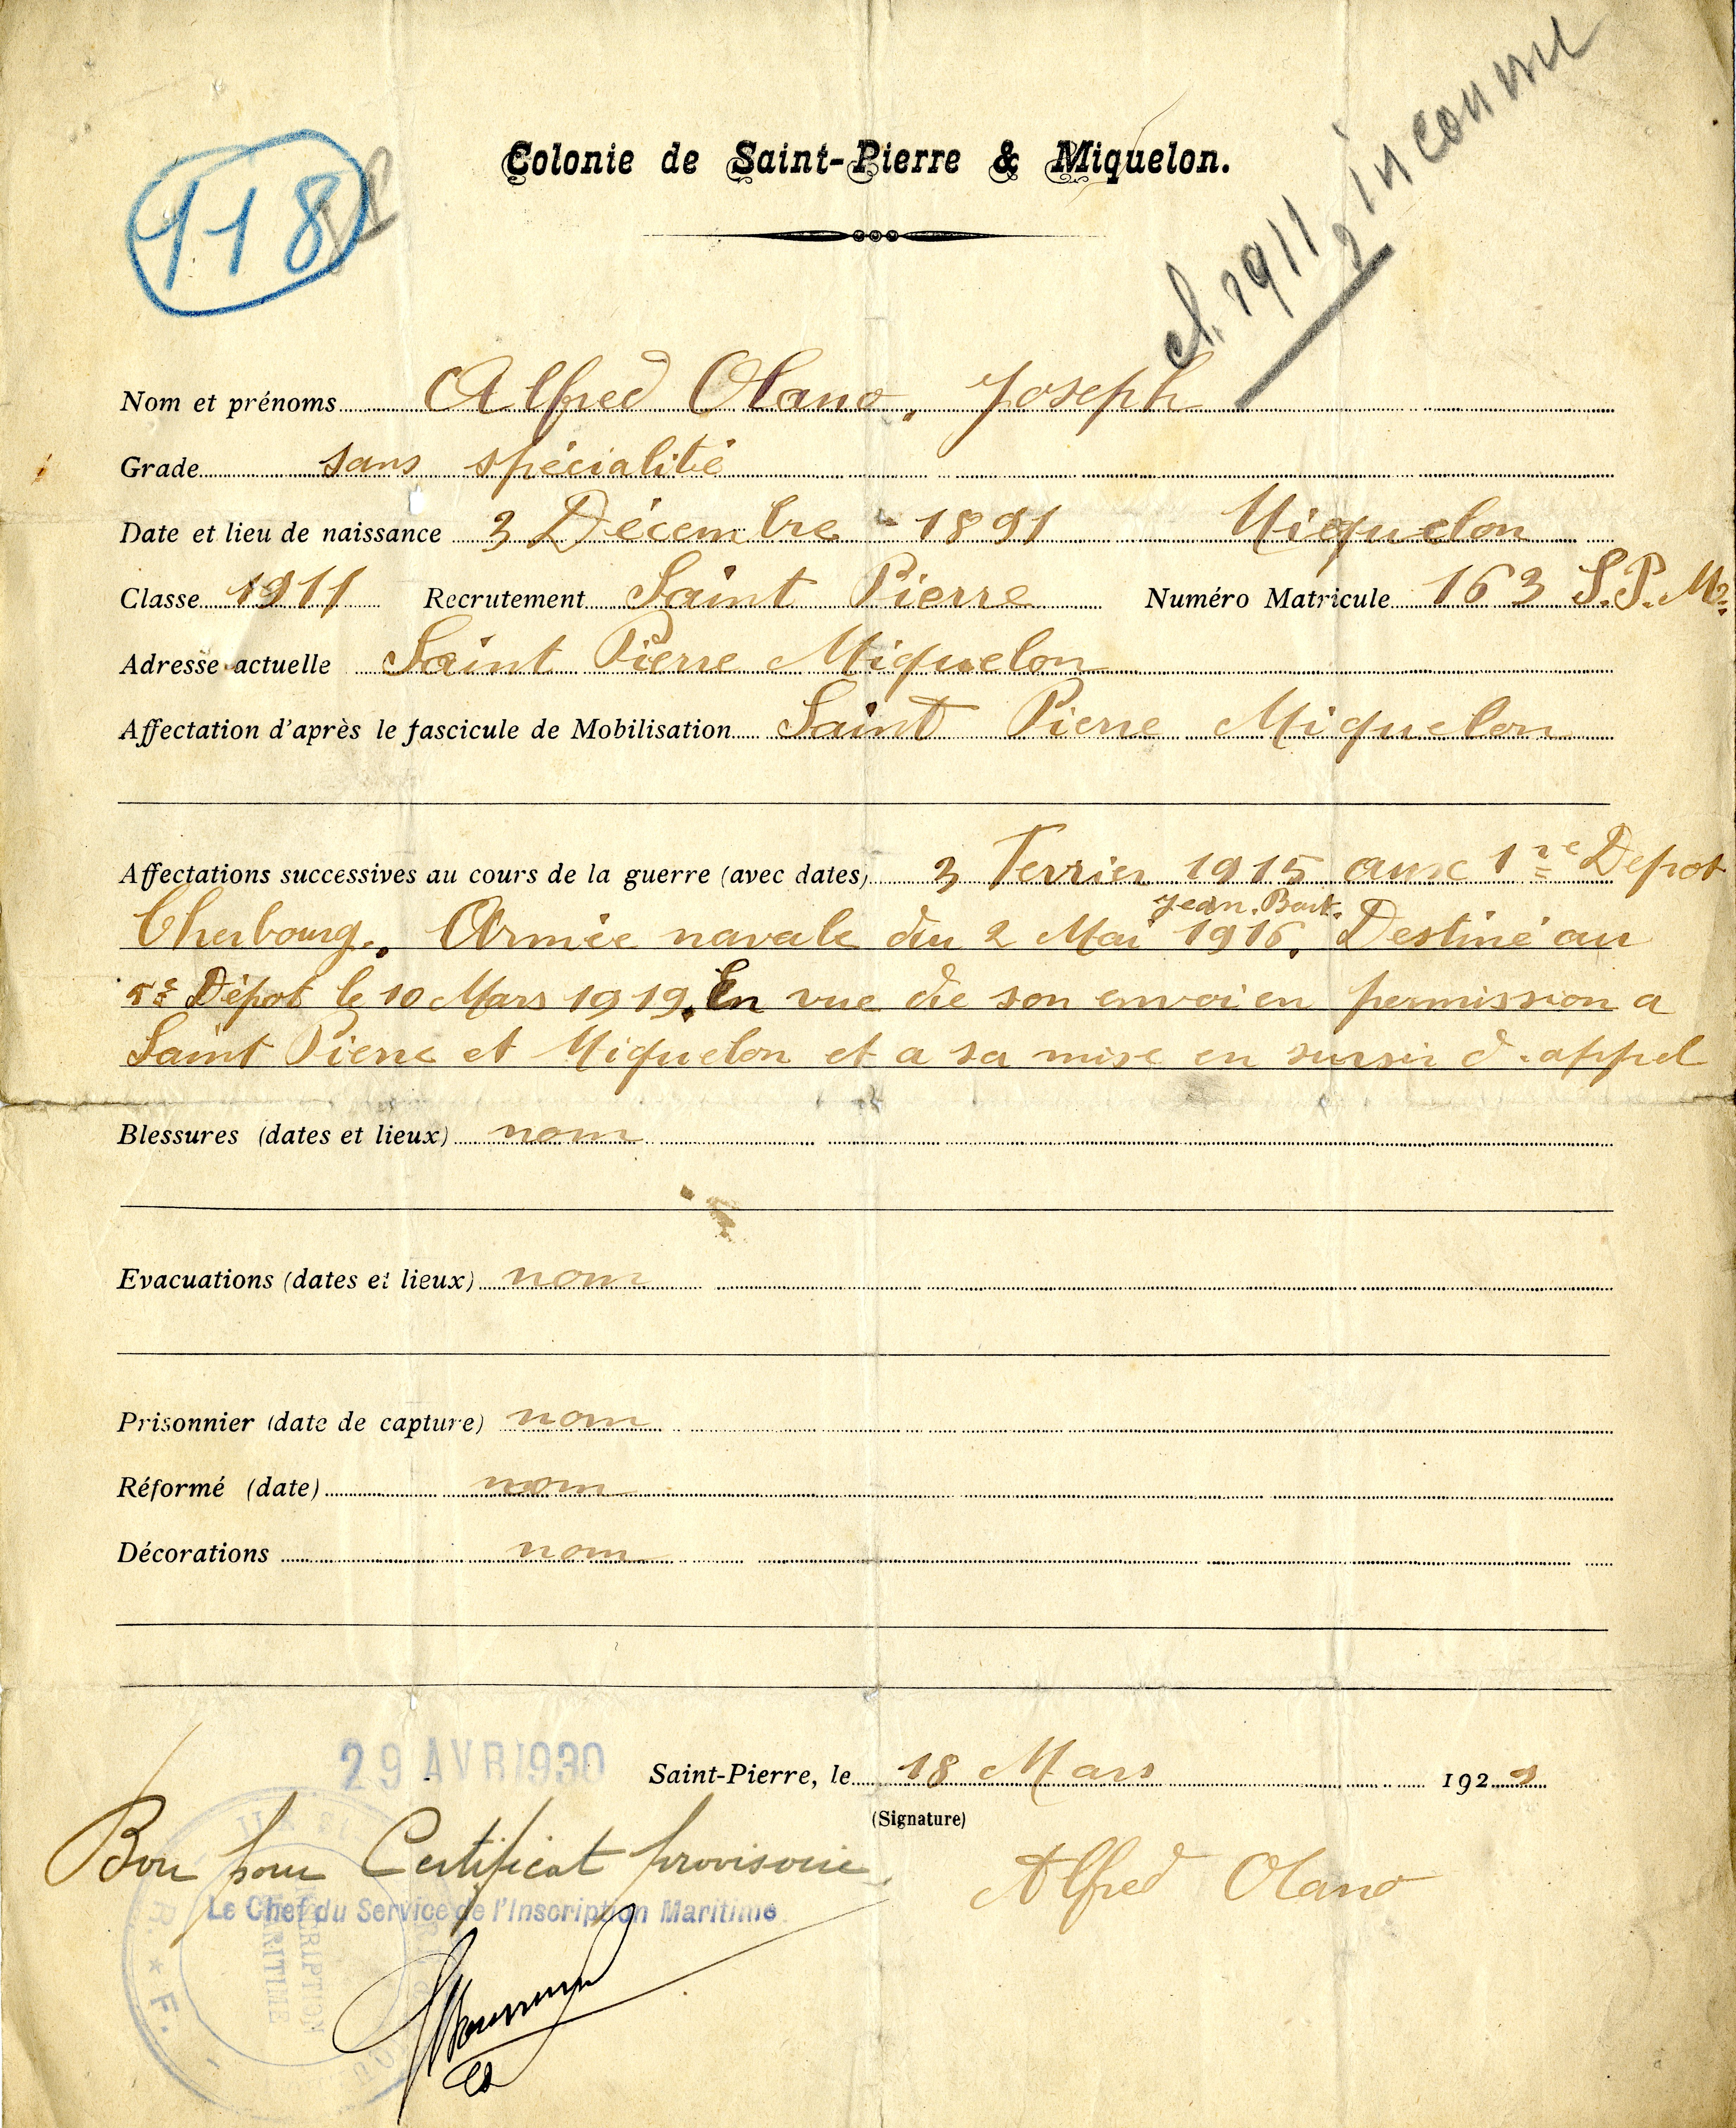 118
cl. 1911
inconnu
Colonie de Saint-Pierre & Miquelon.
Nom et prénoms Alfred Olano, Joseph
Grade sans spécialité
Date et lieu de naissance 3 Décembre - 1891 Miquelon
Classe 1911 Recrutement Saint Pierre Numéro Matricule 163 S.P. M
Adresse actuelle Saint Pierre Miquelon
Affectation d'après le fascicule de Mobilisation Saint Pierre Miquelon
Affectations successives au cours de la guerre (avec dates) 3 Fevrier 1915 aux 1re Depot
Jean. Bart.
Cherbourg. Armée navale du 2 Mai 1916. Destiné au
5e Dépot le 10 Mars 1919. En vue de son envoi en permission a
Saint Pierre et Miquelon et a sa mise en sursir d'appel
Blessures (dates et lieux) nom
Evacuations (dates et lieux) nom
Prisonnier (date de capture) nom
Réformé (date) nom
Décorations nom
29 AVR 1930
Saint-Pierre, le 18 Mars 192
(Signature)
Bon pour Certificat provisoire
Alfred Olano
Le Chef du Service de l'Inscription Maritime
INSCRIPTION
MARITIME
R. * F.